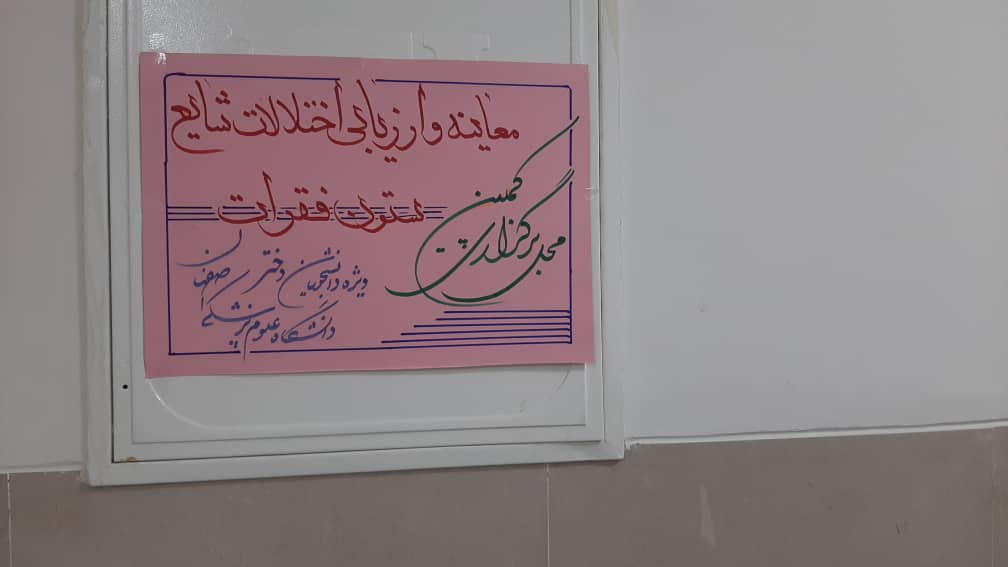 معاینه و ارزیابی اختلالات شایع
ستون فقرات
محل برگزاری کمپین
ویژه دانشجویان دختر
دانشگاه علوم پزشکی اصفهان